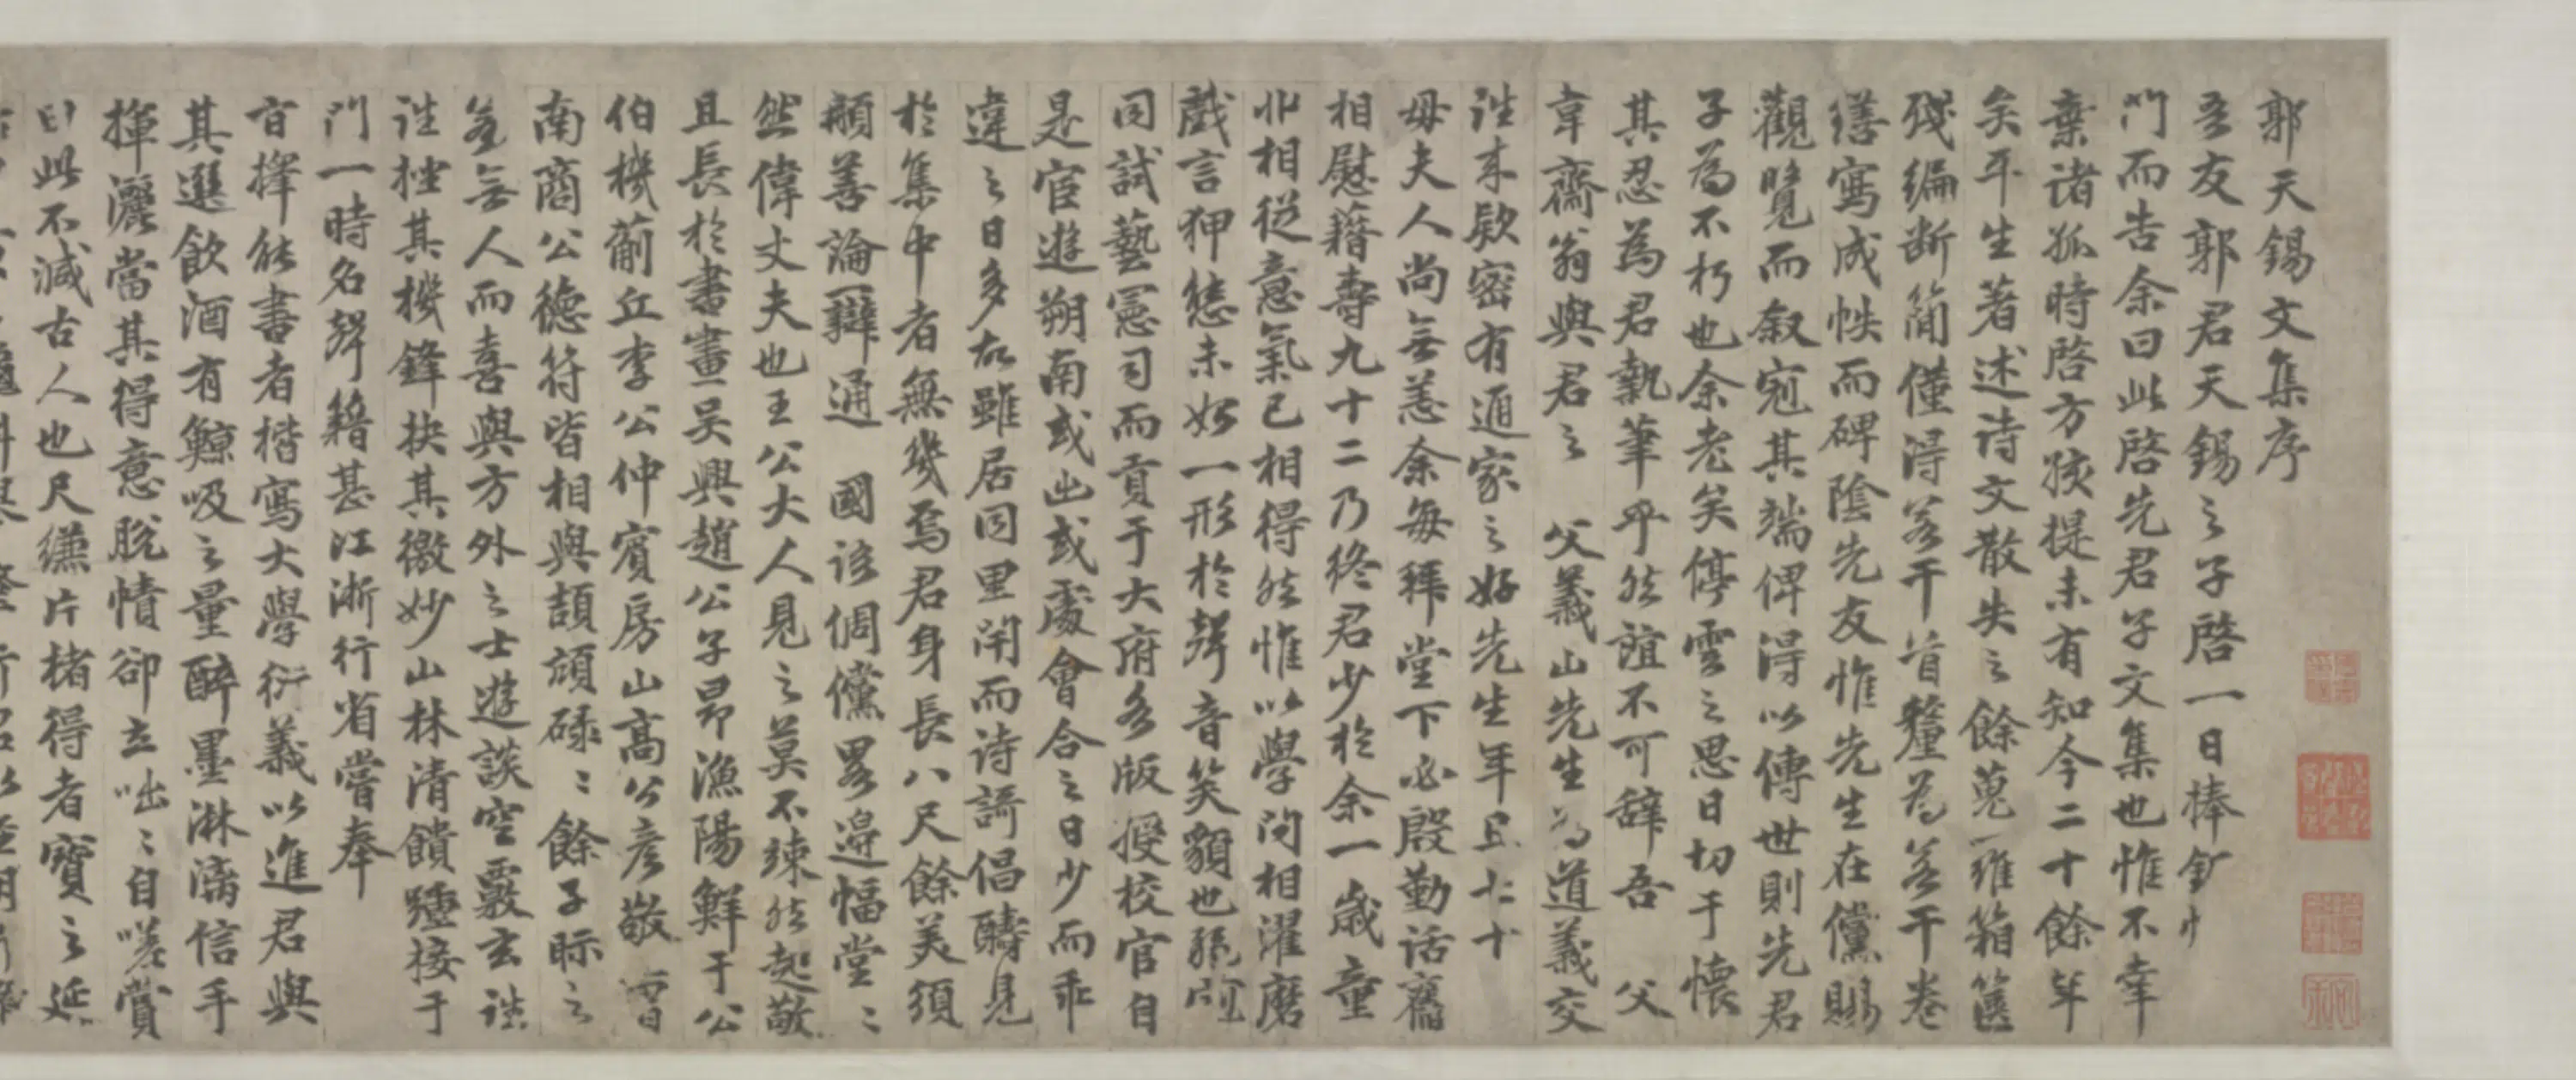 郭天錫文集序
吾友郭君天錫之子啓一日捧鈔
門而告余曰此啓先君子文集也惟不幸
棄諸孤時啓方孩提未有知今二十餘年
矣平生著述诗文散失之餘蒐羅箱篋
殘編断簡僅得若干首釐為若干卷
繕寫成帙而碑陰先友惟先生在儻賜
觀覽而叙冠其端俾得以傳世則先君
子為不朽也余老矣停雲之思日切于懷
其忍為君執筆乎然誼不可辭吾 父
韋齋翁與君之 父義山先生為道義交
往来欵密有通家之好先生年且七十
母夫人尚無恙余每拜堂下必殷勤话舊
相慰藉壽九十二乃终君少於余一歲童
丱相從意氣已相得然惟以學问相濯磨
戲言狎態未始一形於聲音笑貌也
同試藝憲司而貢于大府各版授校官自
是宦遊朔南或出或處會合之日少而乖
違之日多故雖居同里閈而诗謌倡酬見
於集中者無幾焉君身長八尺餘美須
髯善論辯通 國语倜儻畧邊幅堂〻
然偉丈夫也王公大人見之莫不竦然起敬
且長於書畫吴興趙公子昂漁陽鮮于公
伯機薊丘李公仲賓房山高公彦敬 曹
南商公德符皆相與頡頏碌〻餘子眎之
若無人而喜與方外之士遊談空覈玄往
往挫其機鋒抉其微妙山林清饋踵接于
門一時名聲籍甚江淛行省嘗奉
旨擇能書者楷寫大學衍義以進君與
其選飲酒有鯨吸之量醉墨淋漓信手
揮灑當其得意脱幘卻立咄〻自嗟賞
以此不減古人也尺縑片楮得者寶之延